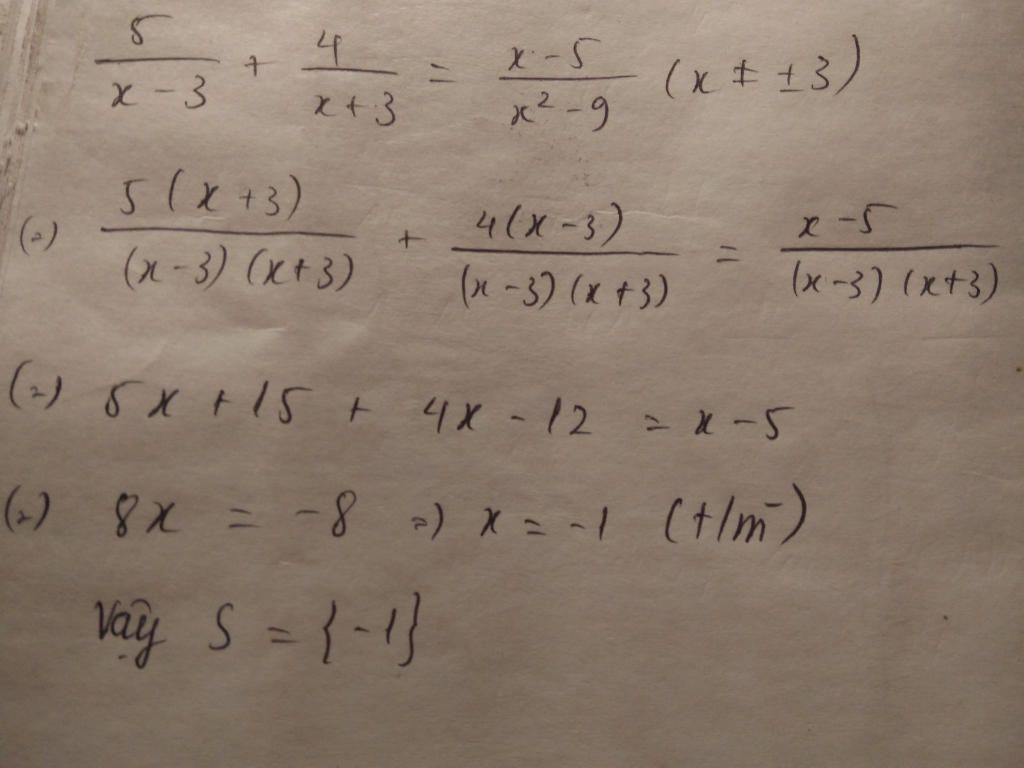 5/(x - 3) + 4/(x + 3) = (x - 5)/(x² - 9) (x ≠ ±3)
(=) 5(x + 3)/((x - 3)(x + 3)) + 4(x - 3)/((x - 3)(x + 3)) = (x - 5)/((x - 3)(x + 3))
(=) 5x + 15 + 4x - 12 = x - 5
(=) 8x = -8 =) x = -1 (t/m)
Vậy S = {-1}